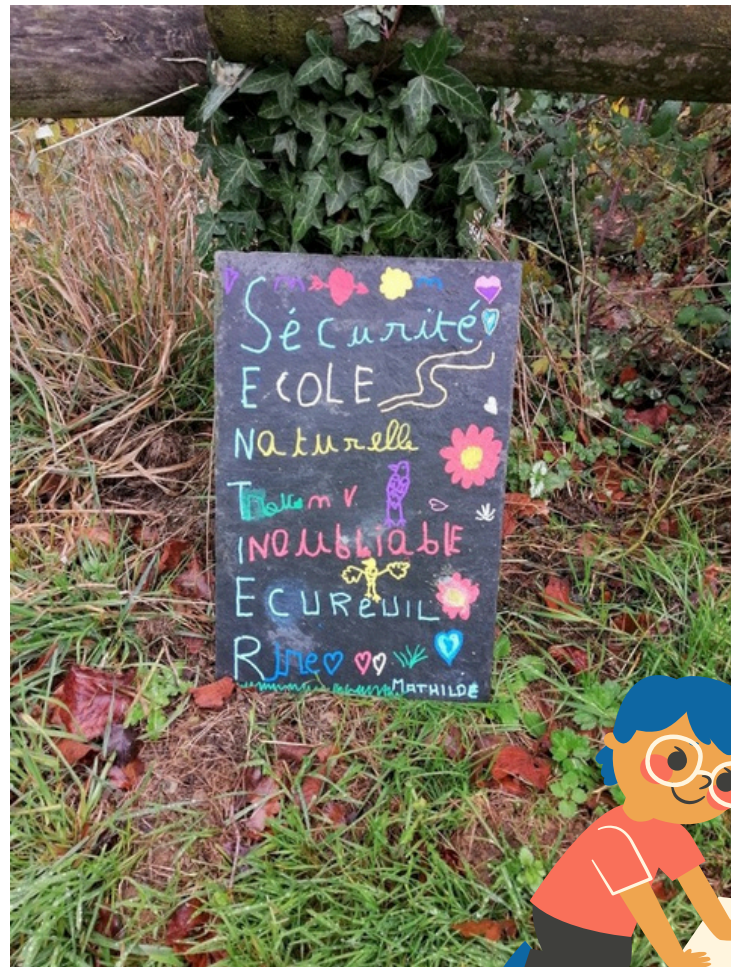 Sécurité
ECOLE
Naturelle
INOUBLIABLE
ECUREUIL
Rire
MATHILDE